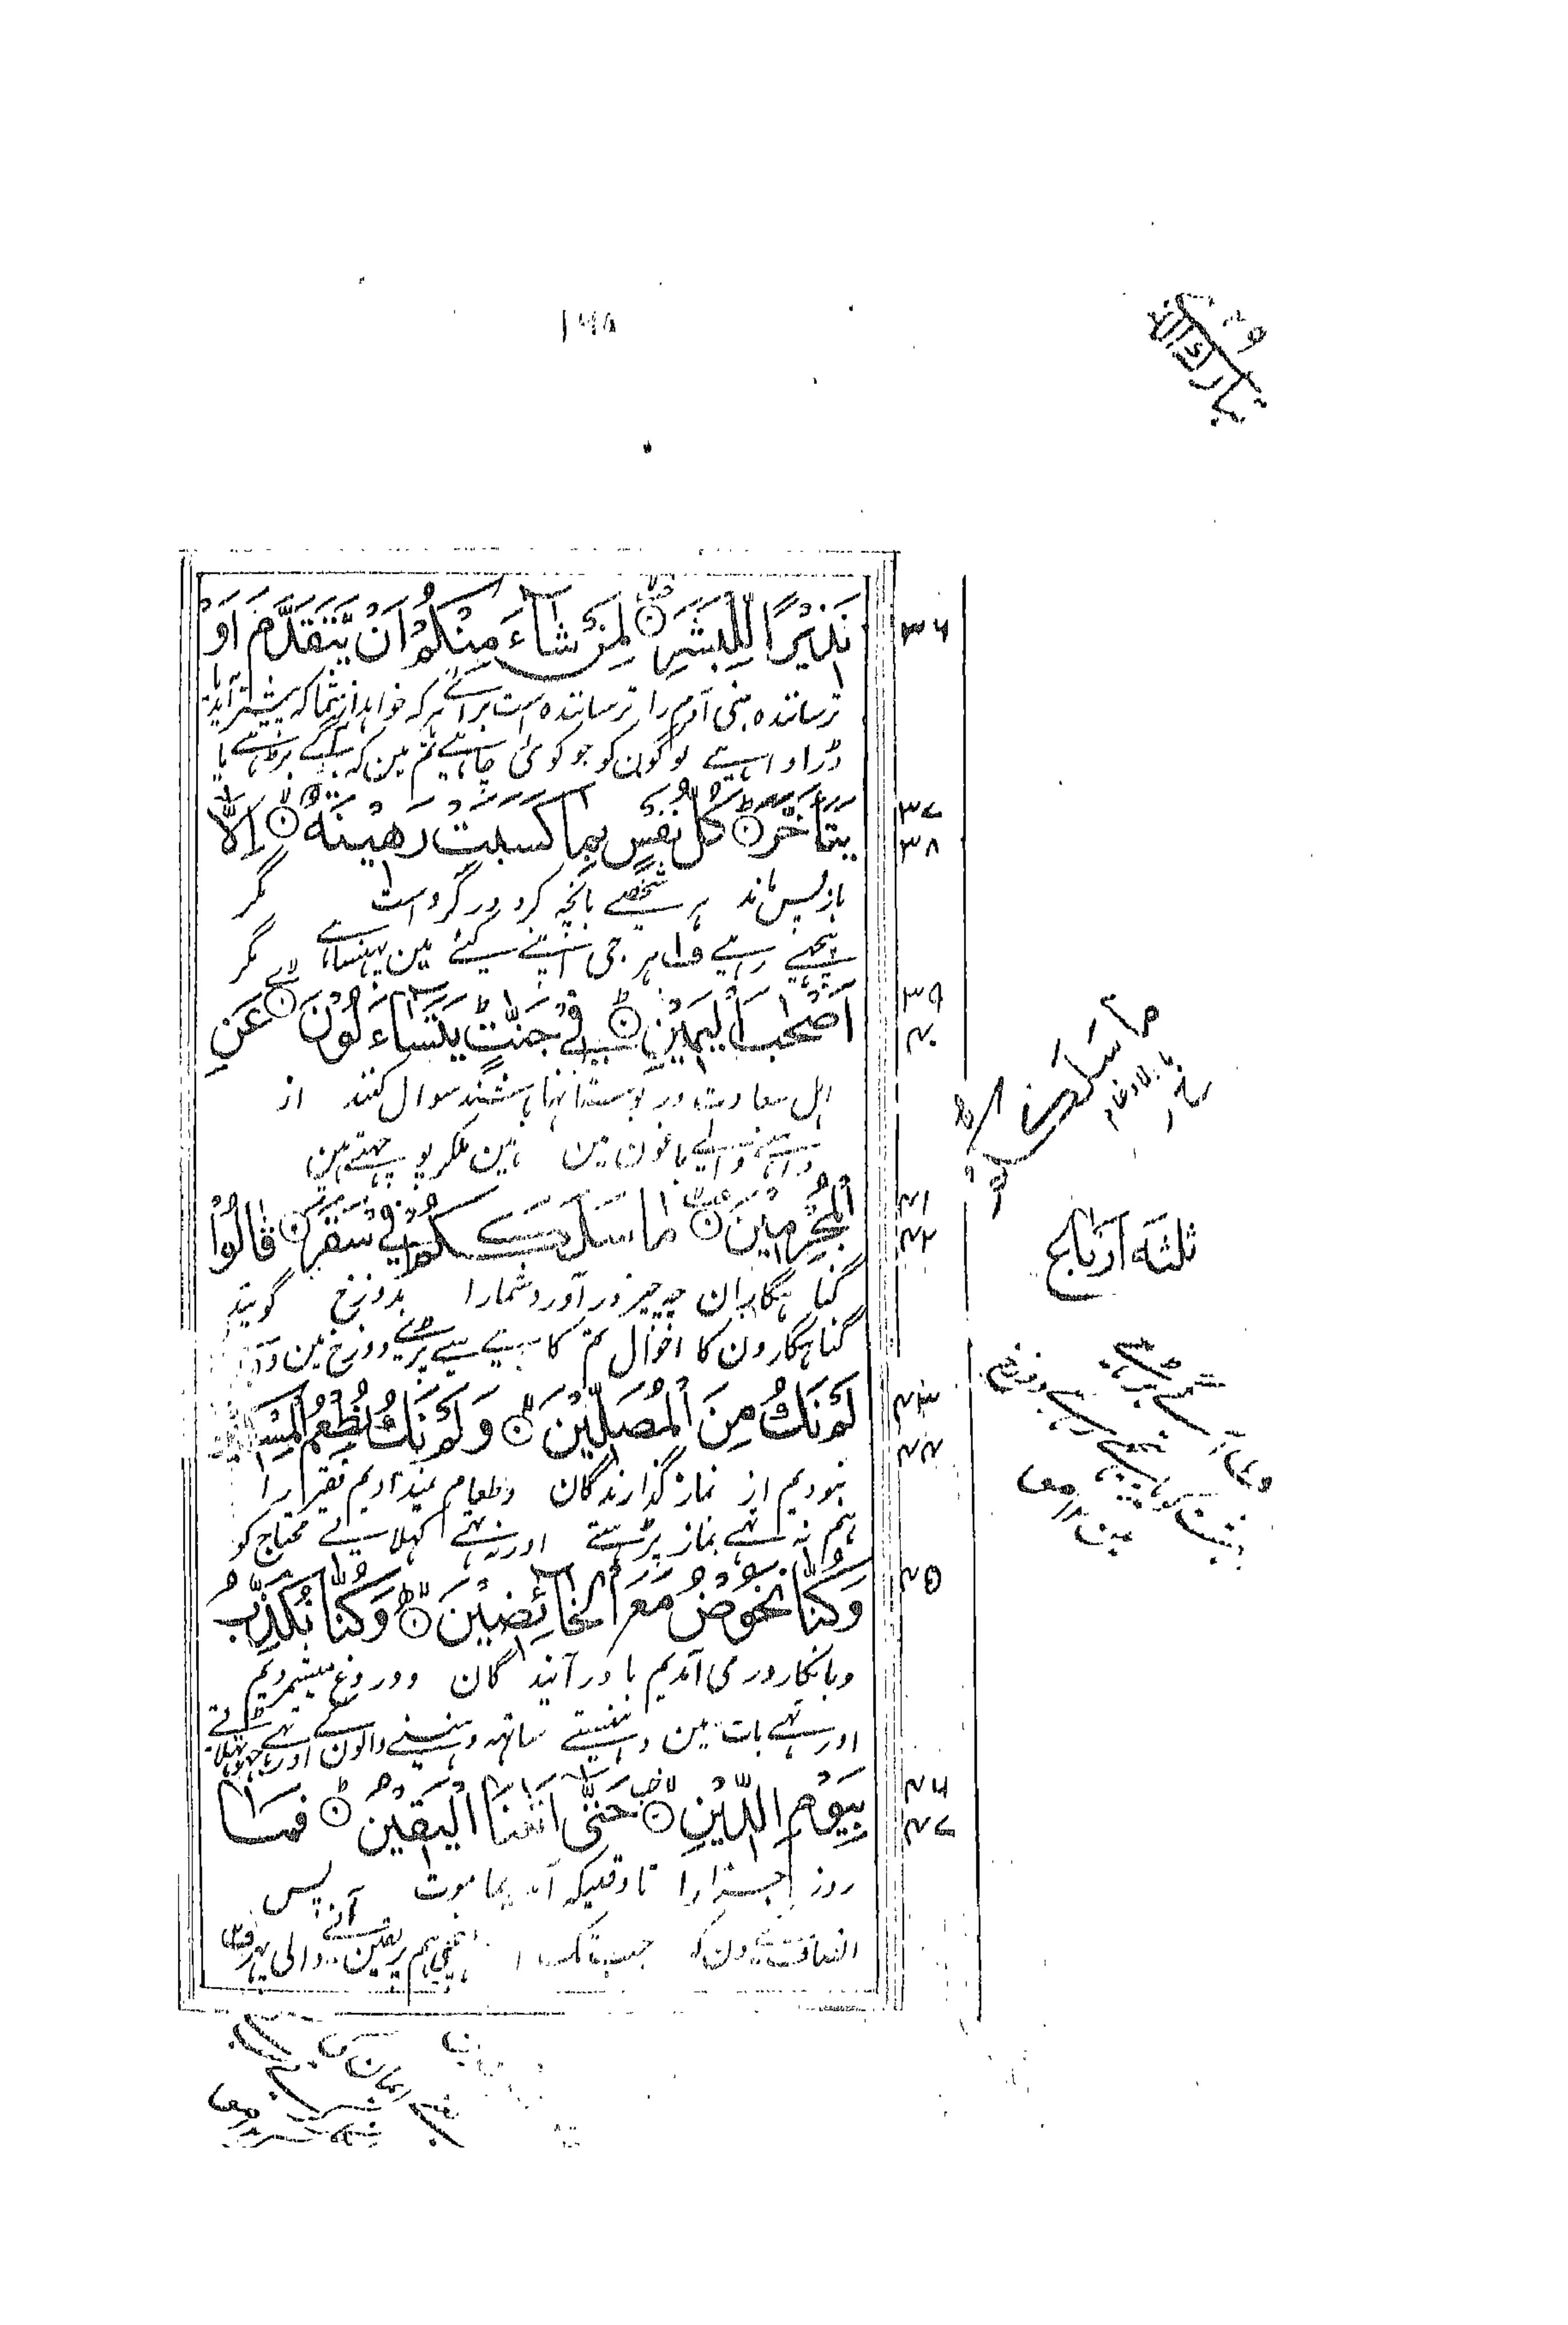 ۱۶۸
۲۹
تبارك الذی
نَذِيْرًا لِّلْبَشَرِ لِمَنْ شَآءَ مِنْكُمْ اَنْ يَّتَقَدَّمَ اَوْ
۳۶
ترسانندہ بنی آدم را ترسانندہ است برائے ہر کہ خواہد از شما کہ پیشتر آید یا
ڈراوا ہے لوگون کو جو کوئی چاہے تم مین کہ آگے بڑہے یا
يَتَاَخَّرَ كُلُّ نَفْسٍۭ بِمَا كَسَبَتْ رَهِيْنَةٌ اِلَّآ
۳۷
۳۸
باز پس ماند ہر شخصے بانچہ کرد در گرو است مگر
پیچھے رہے ہر جی اپنے کیئے مین پہنسا ہے مگر
اَصْحٰبَ الْيَمِيْنِ فِيْ جَنّٰتٍ يَتَسَآءَلُوْنَ عَنِ
۳۹
۴۰
اہل سعادت در بوستانہا باشند سوال کنند از
داہنے والے باغون مین ہین ملکر پوچہتے ہین
الْمُجْرِمِيْنَ مَا سَلَكَكُمْ فِيْ سَقَرَ قَالُوْا
۴۱
۴۲
گناہگاران چہ چیز در آورد شمارا بدوزخ گویند
گناہگارون کا احوال تم کاہے سے پڑے دوزخ مین وہ
ثلثة ارباع
لَمْ نَكُ مِنَ الْمُصَلِّيْنَ وَلَمْ نَكُ نُطْعِمُ الْمِسْكِيْنَ
۴۳
۴۴
نبودیم از نماز گذارندگان وطعام نمیدادیم فقیر را
ہم نہ تہے نماز پڑہتے اور نہ تہے کہلاتے محتاج کو
وَكُنَّا نَخُوْضُ مَعَ الْخَآئِضِيْنَ وَكُنَّا نُكَذِّبُ
۴۵
وبانکار در می آمدیم با در آیندگان ودروغ میشمردیم
اور تہے بات مین دہنستے ساتہہ دہنسنے والون کے اور تہے جہوٹہلاتے
بِيَوْمِ الدِّيْنِ حَتّٰٓى اَتٰىنَا الْيَقِيْنُ فَمَا
۴۶
۴۷
روز جزا را تا وقتیکہ آمد بما موت پس
انصاف کے دن کو جب تک آ پہنچی ہم پر یقین آنے والی پہر